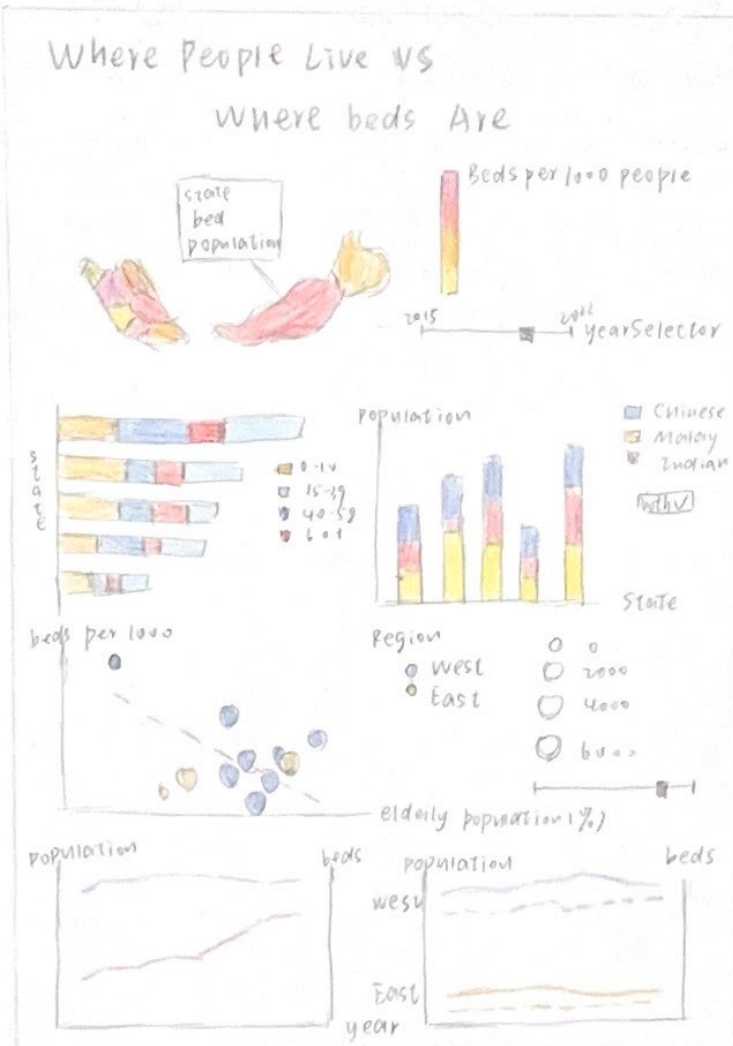 Where People Live VS
Where beds Are
state
bed
population
Beds per 1000 people
2015
2022
yearSelector
state
0-14
15-39
40-59
60+
population
Chinese
Malay
Indian
State
beds per 1000
Region
West
East
0
2000
4000
6000
elderly population(%)
population
beds
year
population
beds
West
East